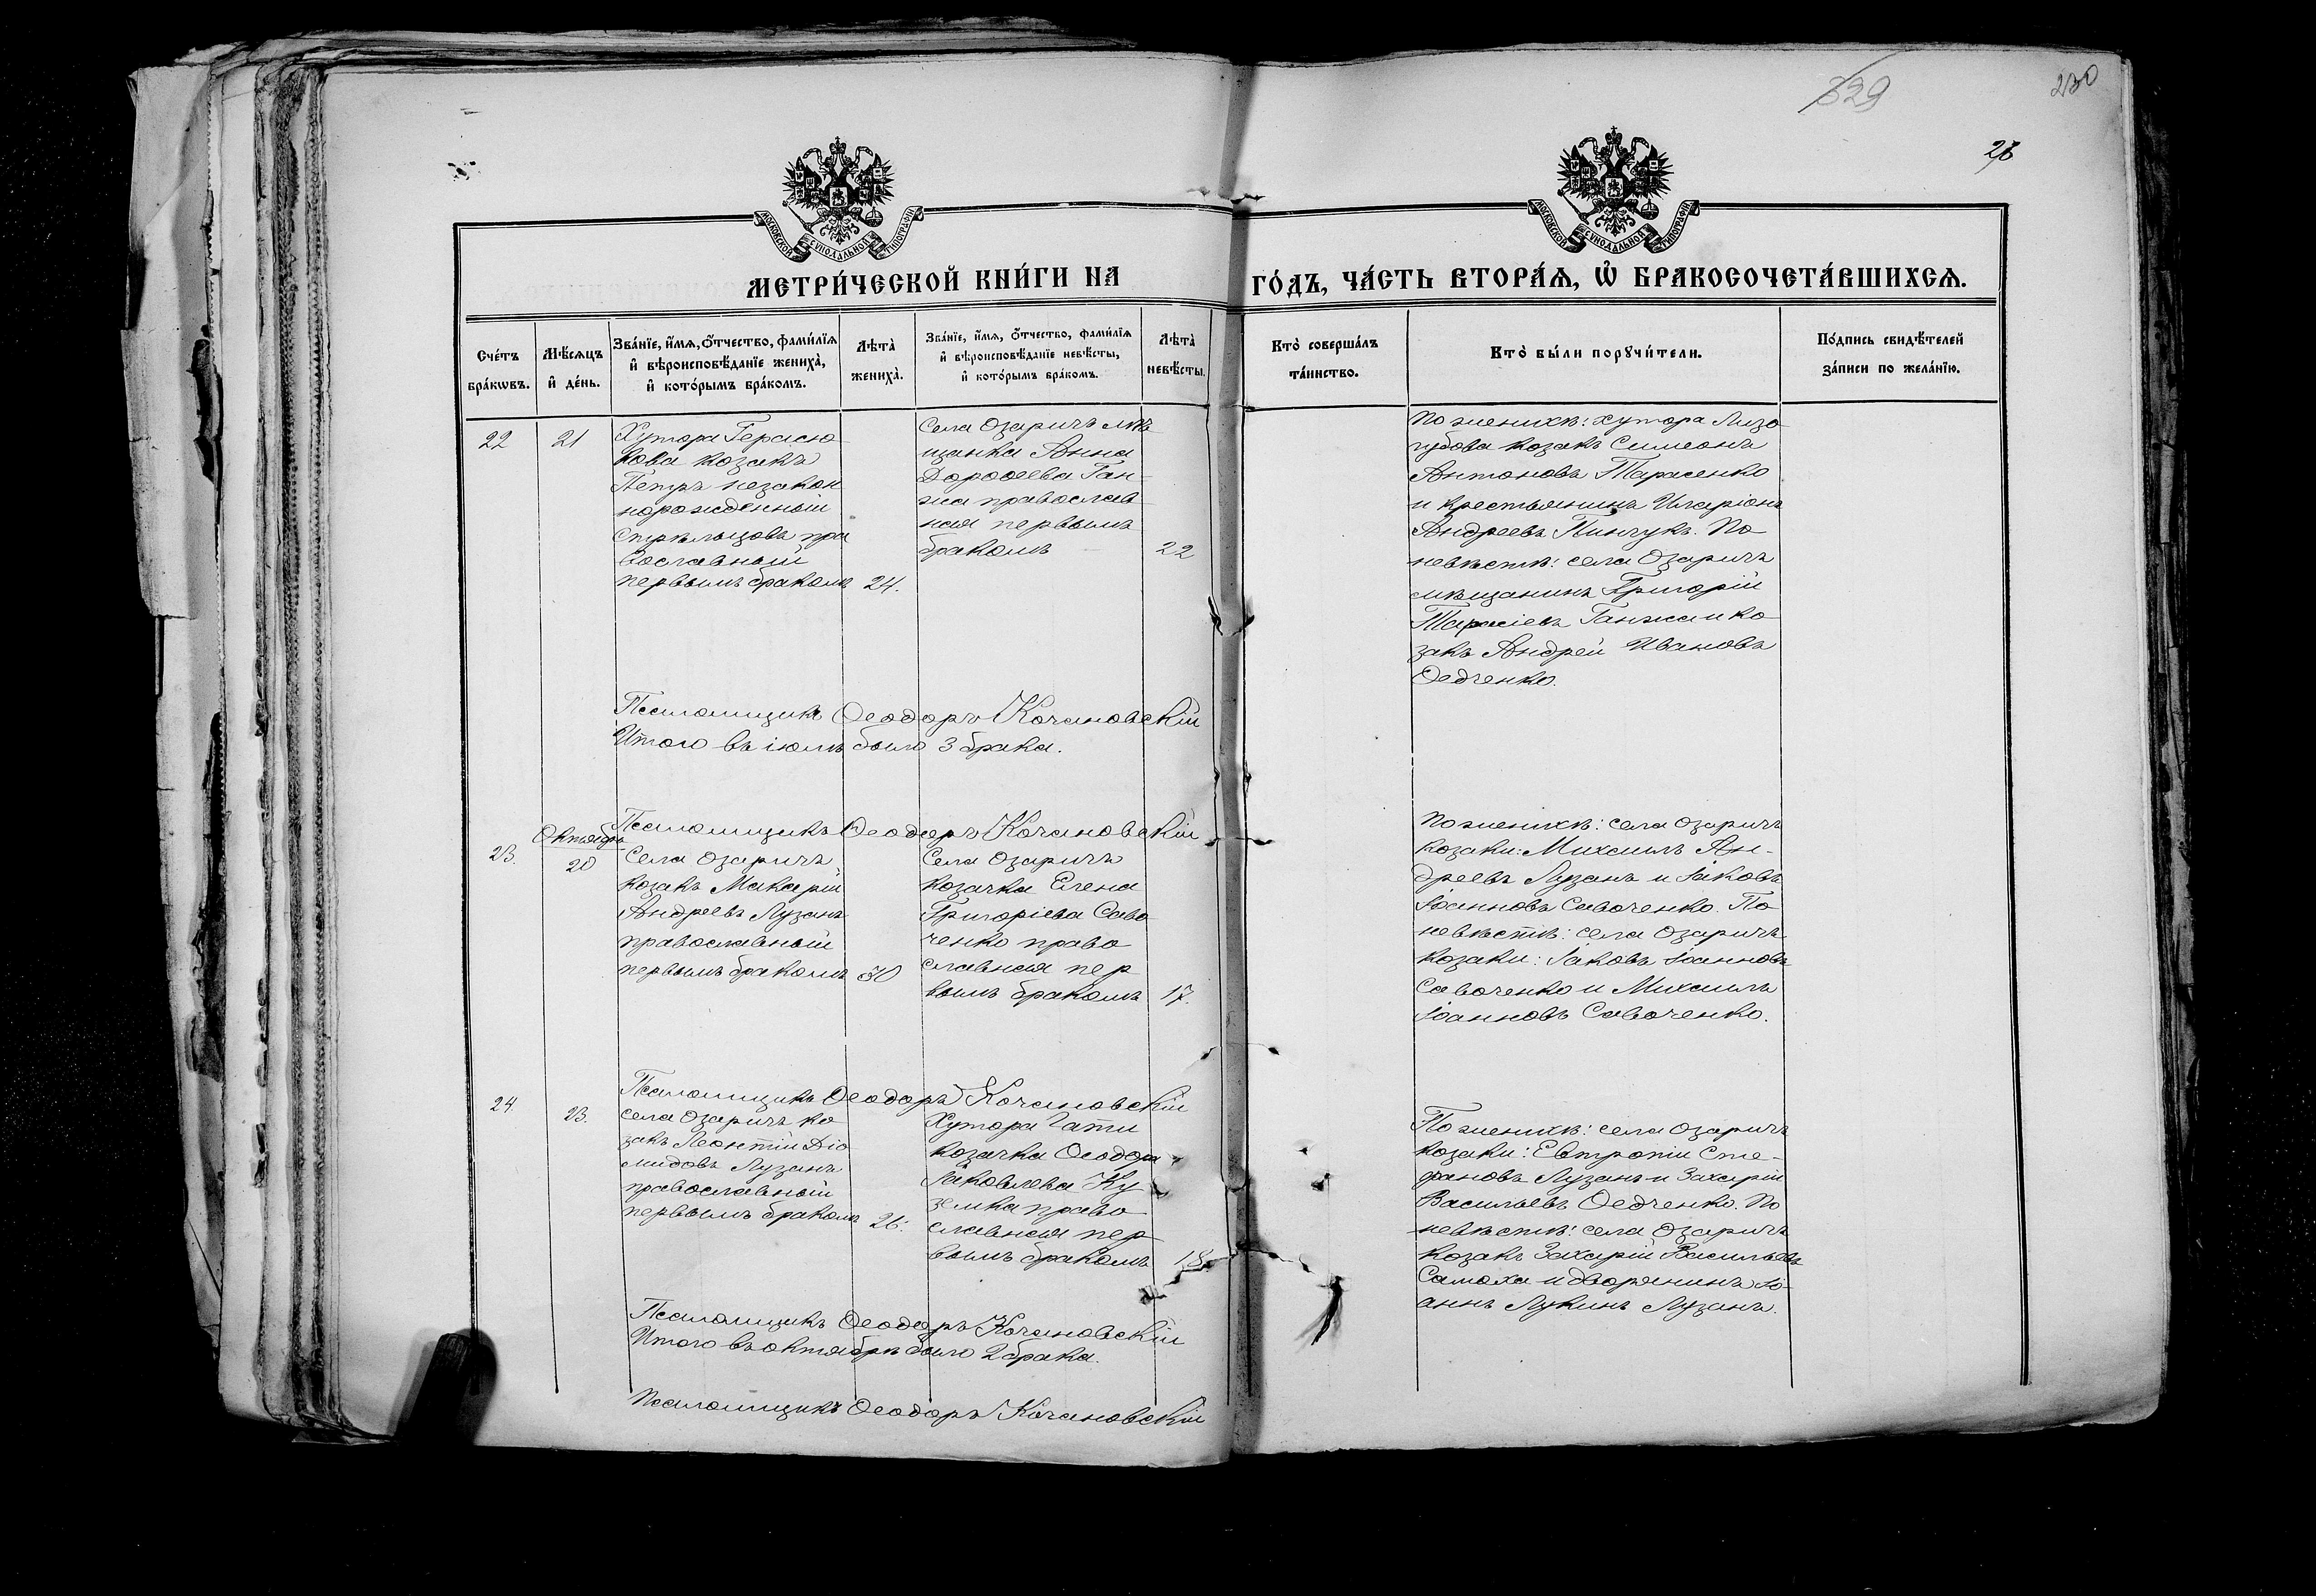 329
230
26
МОСКОВСКОЙ СѴНОДАЛЬНОЙ ТИПОГРАФІИ
МОСКОВСКОЙ СѴНОДАЛЬНОЙ ТИПОГРАФІИ
МЕТРИ́ЧЕСКОЙ КНИ́ГИ НА
ГО́ДЪ, ЧА́СТЬ ВТОРА́Ѧ, Ѡ҆ БРАКОСОЧЕТА́ВШИХСѦ.
Сче́тъ
бра́кѡвъ.
Мѣ́сѧцъ
и҆ де́нь.
Зва́нїе, и҆́мѧ, ѻ҆́тчество, фами́лїѧ
и҆ вѣроисповѣ́данїе жениха̀,
и҆ кото́рымъ бра́комъ.
Лѣта̀
жениха̀.
Зва́нїе, и҆́мѧ, ѻ҆́тчество, фами́лїѧ
и҆ вѣроисповѣ́данїе невѣ́сты,
и҆ кото́рымъ бра́комъ.
Лѣта̀
невѣ́сты.
Кто̀ соверша́лъ
та́инство.
Кто̀ бы́ли порꙋчи́тели.
По́дпись свидѣ́телей
за́писи по жела́нїю.
22
21
Хутора Герасю
кова козакъ
Петръ незакон
норожденный
Стрѣльцовъ пра
вославный
первымъ бракомъ
24.
Села Озаричъ мѣ
щанка Анна
Дороѳеева Ган-
жа православ
ная первымъ
бракомъ
22
По женихѣ: хутора Лизо
губова козакъ Симеонъ
Антоновъ Тарасенко
и крестьянинъ Иларіонъ
Андреевъ Пинчукъ. По
невѣстѣ: села Озаричъ
мѣщанинъ Григорій
Тарасіевъ Ганжа и ко
закъ Андрей Ивановъ
Ѳедченко.
Псаломщикъ Ѳеодоръ Кочановскій
Итого въ іюлѣ было 3 брака.
Псаломщикъ Ѳеодоръ Кочановскій
23.
Октябрь
20
Села Озаричъ
козакъ Макарій
Андреевъ Лузанъ
православный
первымъ бракомъ
30
Села Озаричъ
козачка Елена
Григоріева Саво
ченко право
славная пер
вымъ бракомъ
17.
По женихѣ: села Озаричъ
козаки: Михаилъ Ан-
дреевъ Лузанъ и Іаковъ
Іоанновъ Савоченко. По
невѣстѣ: села Озаричъ
козаки: Іаковъ Іоанновъ
Савоченко и Михаилъ
Іоанновъ Савоченко.
Псаломщикъ Ѳеодоръ Кочановскій
24.
23.
села Озаричъ ко
закъ Леонтій Діо
мидовъ Лузанъ
православный
первымъ бракомъ
26.
Хутора Гати
козачка Ѳеодора
Іаковлева Ку
земка право
славная пер
вымъ бракомъ
18.
По женихѣ: села Озаричъ
козаки: Евтропій Сте-
фановъ Лузанъ и Захарій
Васильевъ Ѳедченко. По
невѣстѣ: села Озаричъ
козакъ Захарій Васильевъ
Самоха и дворянинъ Іо-
аннъ Лукинъ Лузанъ.
Псаломщикъ Ѳеодоръ Кочановскій
Итого въ октябрѣ было 2 брака.
Псаломщикъ Ѳеодоръ Кочановскій